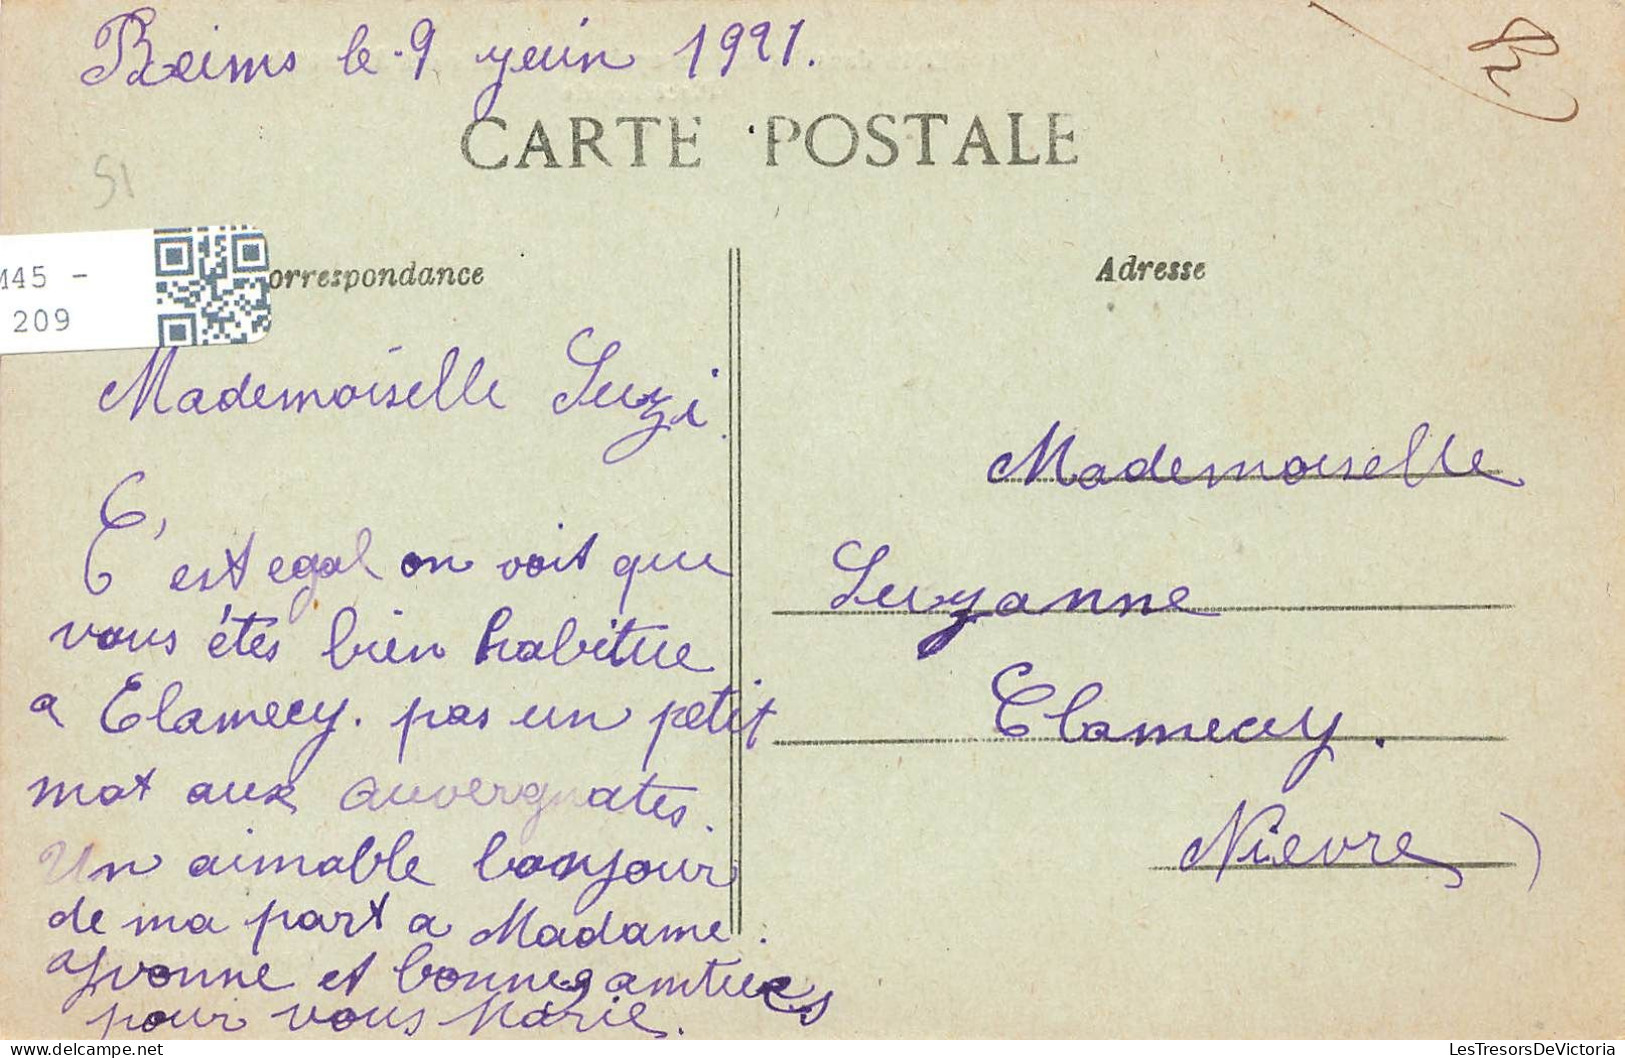 Reims le 9 juin 1921.
CARTE POSTALE
51
M45 -
209
orrespondance
Adresse
Mademoiselle Suzi.
C'est egal on voit que
vous étes bien habitue
a Clamecy. pas un petit
mot aux auvergnates.
Un aimable bonjour
de ma part a Madame.
Yvonne et bonnes amitiees
pour vous Marie.
Mademoiselle
Suzanne
Clamecy.
Nievre)
LesTresorsDeVictoria